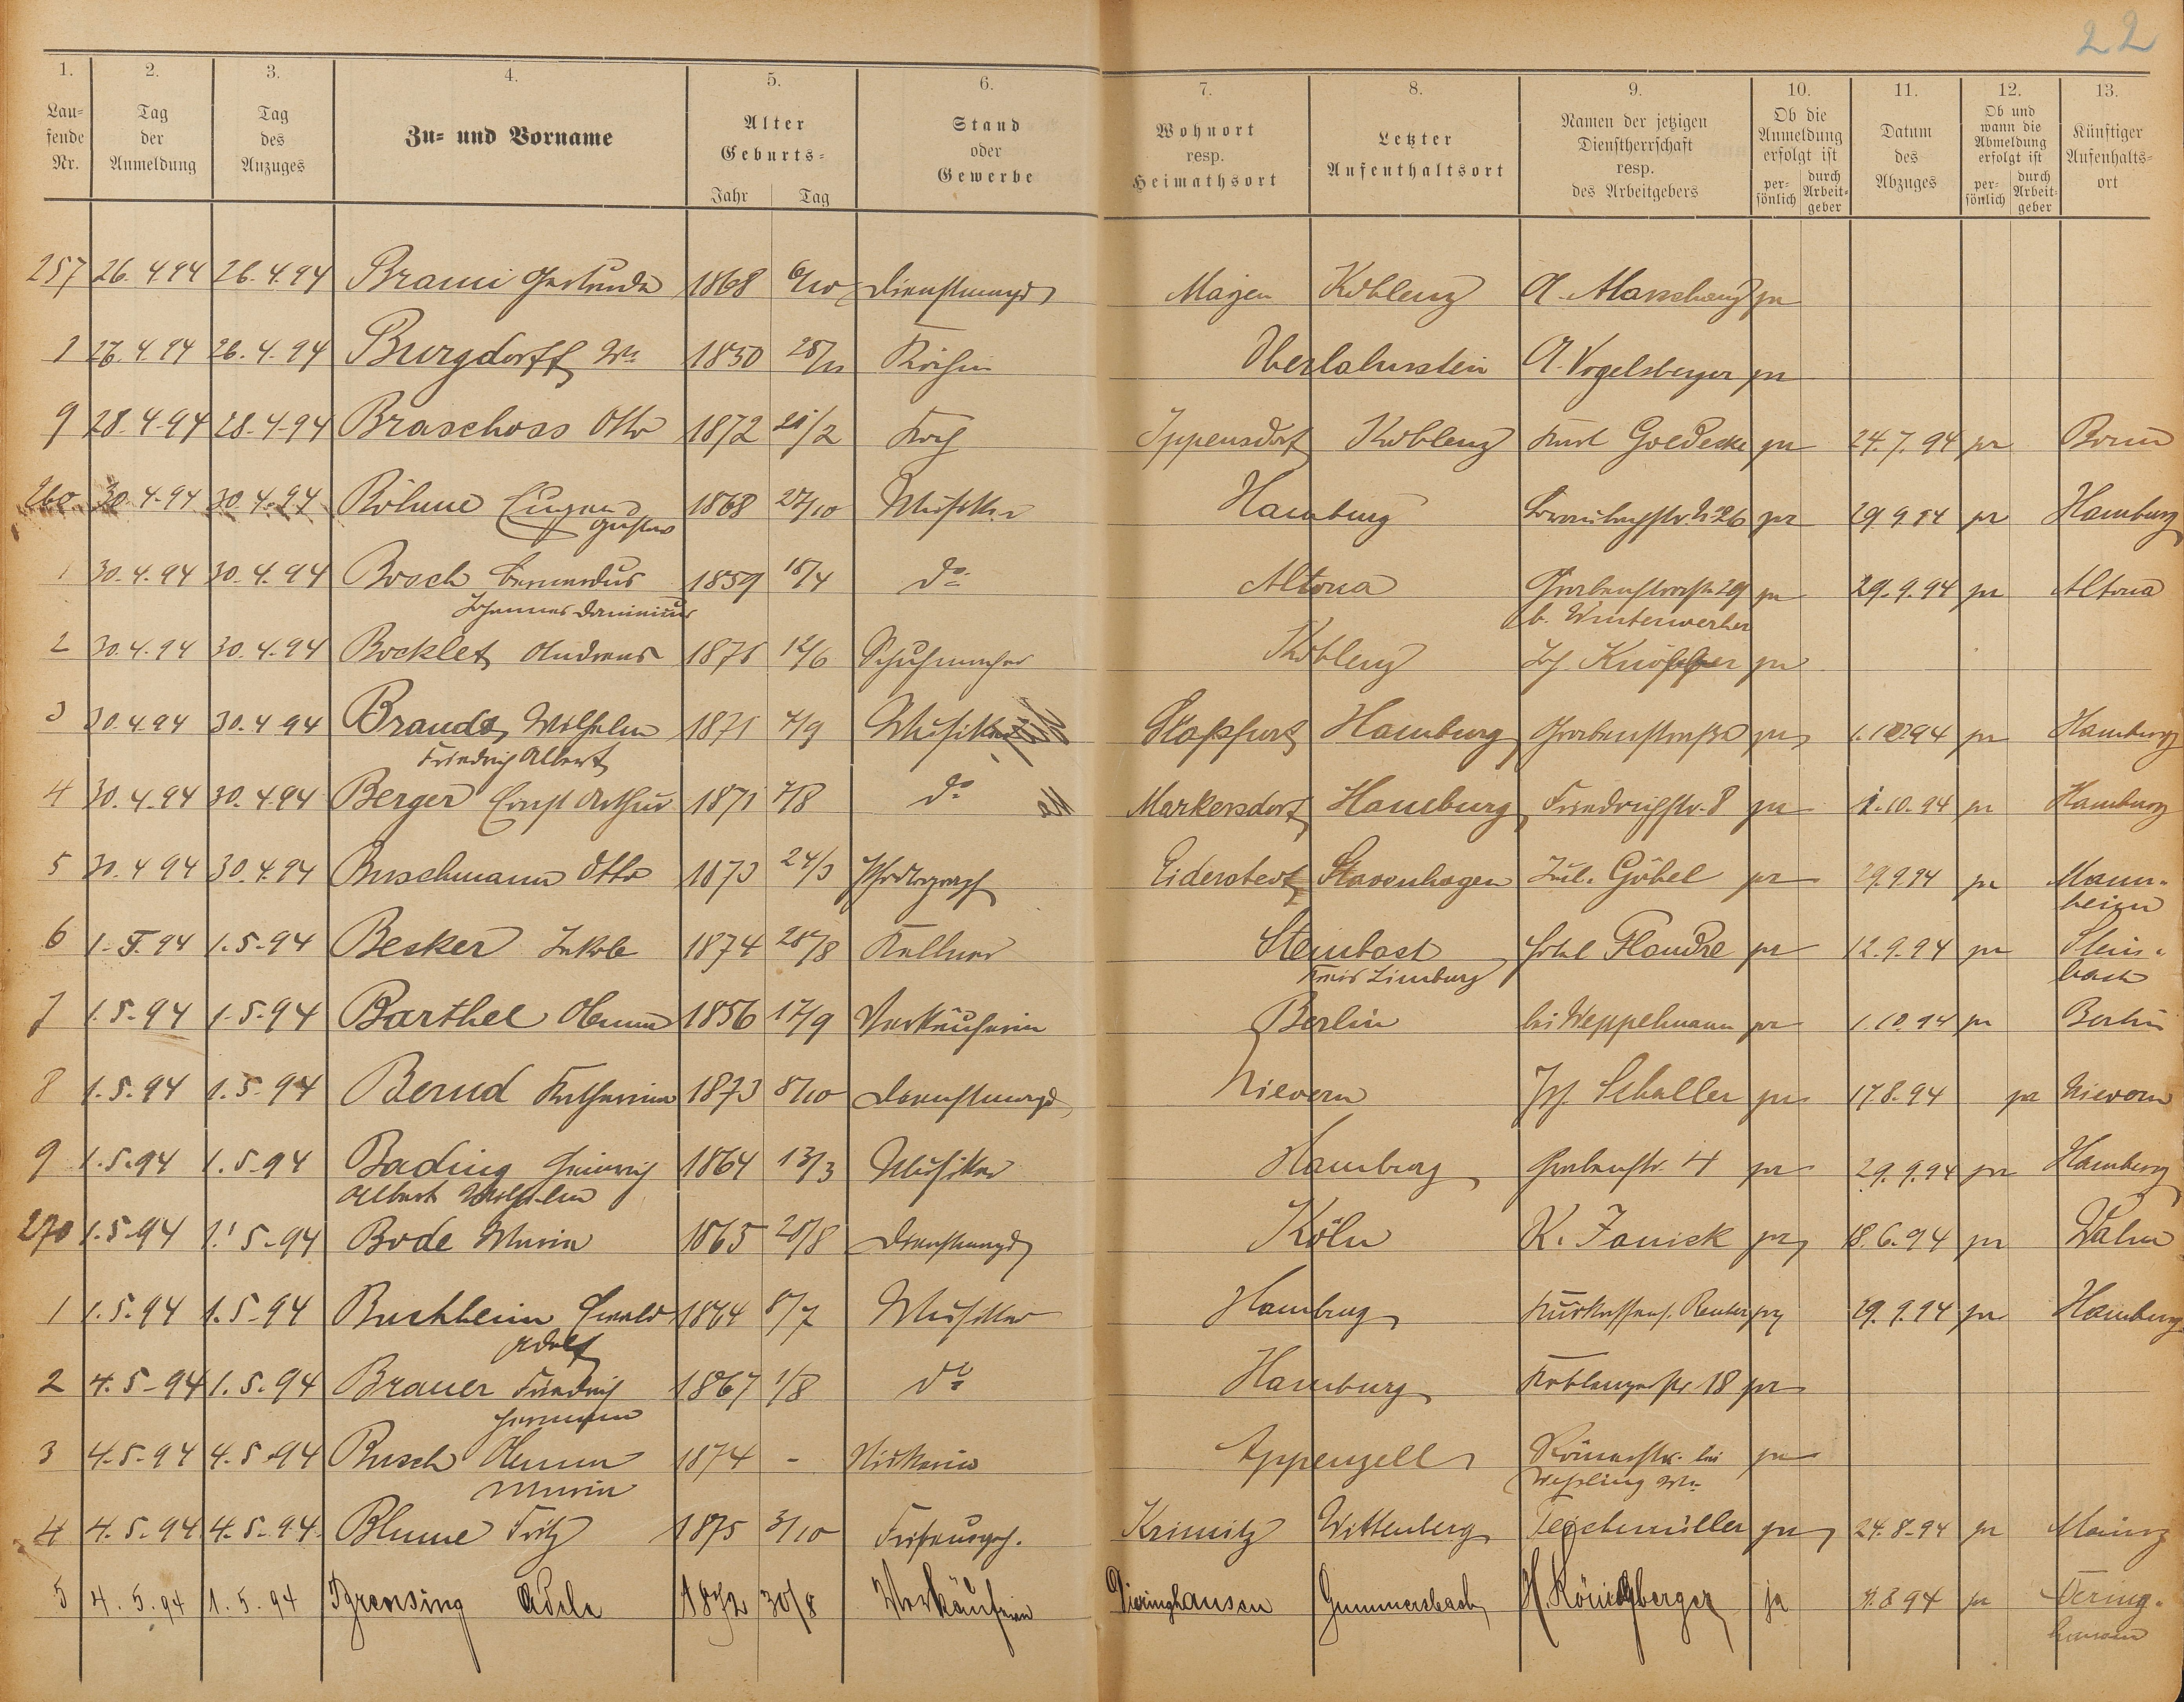 22
1. 2. 3. 4. 5. 6. 7. 8. 9. 10. 11. 12. 13.
Laufende Nr. | Tag der Anmeldung | Tag des Anzuges | Zu- und Vorname | Alter Geburts- Jahr Tag | Stand oder Gewerbe | Wohnort resp. Heimathsort | Letzter Aufenthaltsort | Namen der jetzigen Dienstherrschaft resp. des Arbeitgebers | Ob die Anmeldung erfolgt ist persönlich durch Arbeitgeber | Datum des Abzuges | Ob und wann die Abmeldung erfolgt ist persönlich durch Arbeitgeber | Künftiger Aufenthaltsort
257 26.4.94 26.4.94 Brami Gertrude 1868 6/10 Dienstmagd Mayen Koblenz A. ja
1 27.4.94 26.4.94 Burgdorff We 1850 28/11 Köchin Oberlahnstein A. Vogelsberger ja
9 28.4.94 28.4.94 Braschoss Otto 1872 21/2 Koch Ippensdorf Koblenz Karl Goedecke ja 24.7.94 ja Bonn
260 30.4.94 30.4.94 Böhme Eugen 1868 27/10 Musiker Hamburg No 26 ja 29.9.94 ja Hamburg
Gustav
1 30.4.94 30.4.94 Bosch Bernardus 1859 18/4 do Altona Grabenstrasse 29 ja 29.9.94 ja Altona
Johannes Dominicus b. Winterwerber
2 30.4.94 30.4.94 Bocklet Andreas 1875 12/6 Schuhmacher Koblenz Joh. ja
3 30.4.94 30.4.94 Brands Wilhelm 1871 7/9 Musiker Staßfurt Hamburg Grabenstraße ja 1.10.94 ja Hamburg
Friedrich Albert
4 30.4.94 30.4.94 Berger Ernst Arthur 1871 7/8 do Markersdorf Hamburg Friedrichstr. 8 ja 1.10.94 ja Hamburg
5 30.4.94 30.4.94 Buschmann Otto 1873 24/3 Photograph Eiderstedt Stavenhagen Jul. Göbel ja 29.9.94 ja Mann-
heim
6 1.5.94 1.5.94 Becker Jakob 1874 28/8 Kellner Steinbach Hotel Flandre ja 12.9.94 ja Stein-
Kreis Limburg bach
7 1.5.94 1.5.94 Barthel Anna 1856 17/9 Verkäuferin Berlin bei Weppelmann ja 1.10.94 ja Berlin
8 1.5.94 1.5.94 Bernd Katharina 1873 8/10 Dienstmagd Nievern Jos. Schaller ja 17.8.94 ja Nievern
9 1.5.94 1.5.94 Bading Heinrich 1864 13/3 Musiker Hamburg Grabenstr. 4 ja 29.9.94 ja Hamburg
Albert Wilhelm
270 1.5.94 1.5.94 Bode Maria 1865 28/8 Dienstmagd Köln K. Janick ja 18.6.94 ja
1 1.5.94 1.5.94 Buchheim Ewald 1864 8/7 Musiker Hamburg Reuter ja 29.9.94 ja Hamburg
Adolf
2 4.5.94 1.5.94 Brauer Friedrich 1867 1/8 do Hamburg Koblenzerstr. 18 ja
Hermann
3 4.5.94 4.5.94 Busch Anna 1874 - Appenzell Römerstr. bei ja
Maria
4 4.5.94 4.5.94 Blume Fritz 1875 3/10 Friseurgeh. Wittenberg Teichmüller ja 24.8.94 ja Mainz
5 4.5.94 1.5.94 Brensing Adele 1872 30/8 Verkäuferin Dieringhausen Gummersbach H. Königsberger ja ja Dering-
hausen